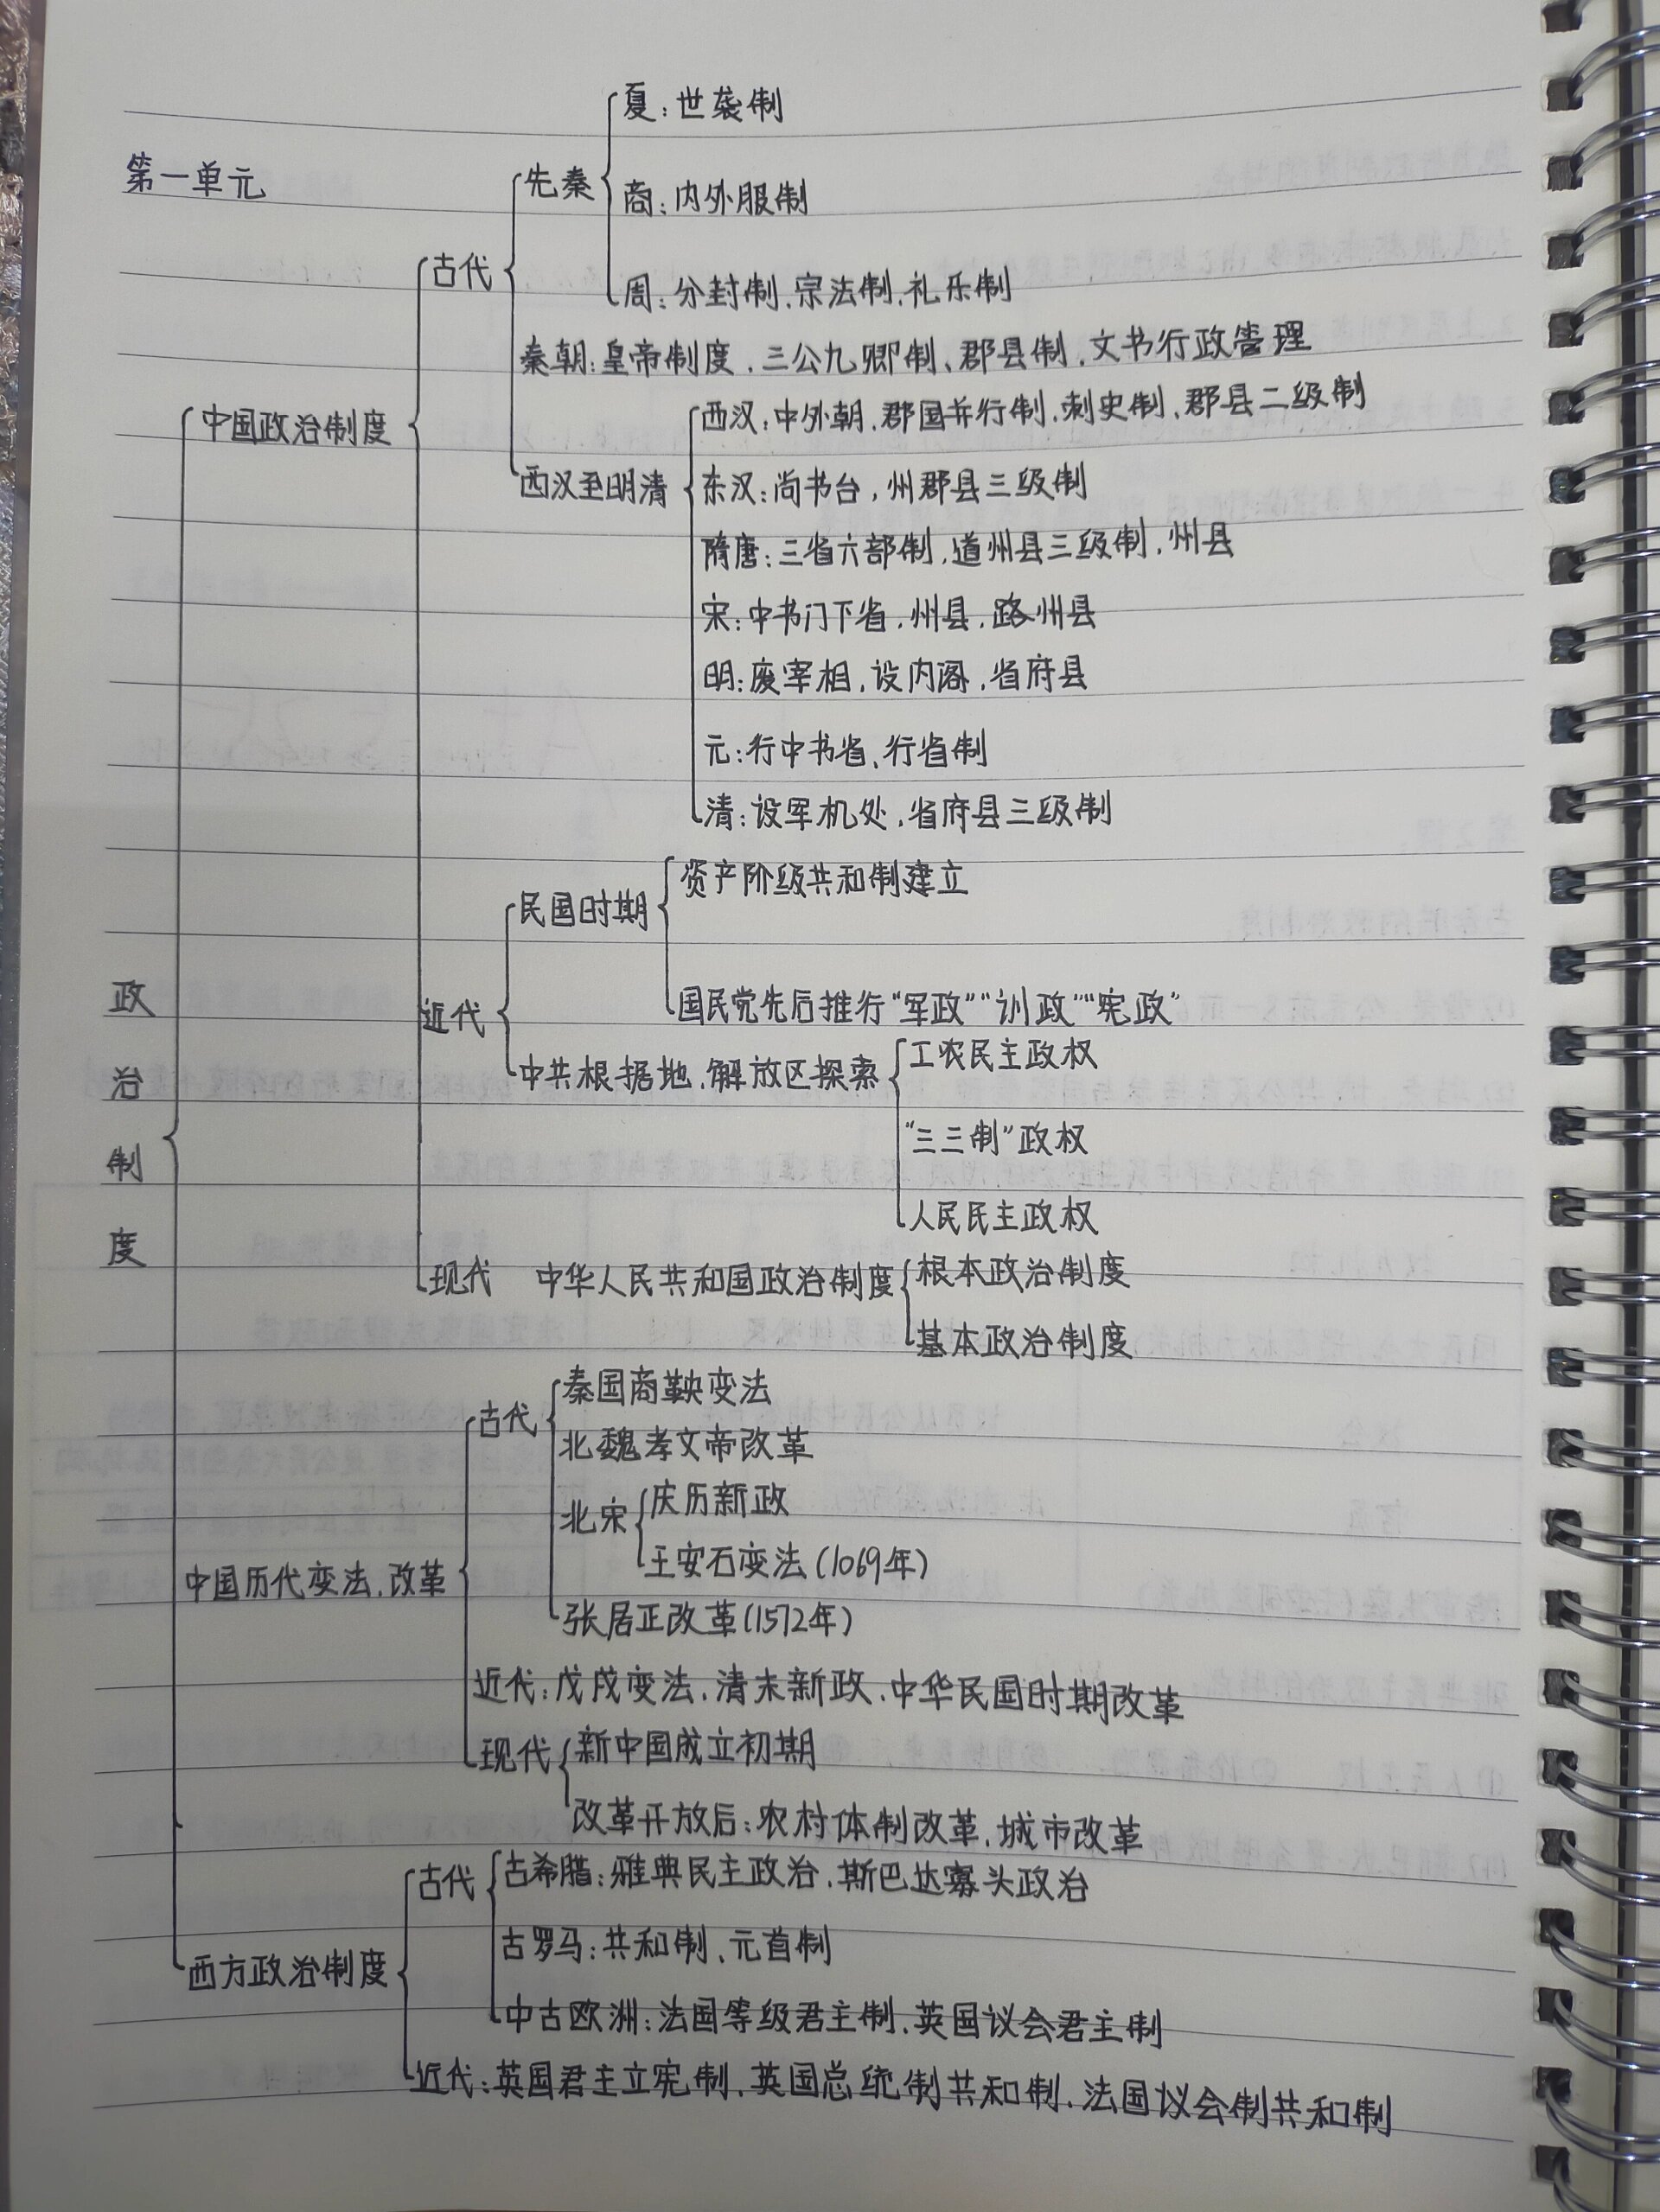 第一单元
政治制度
中国政治制度
古代
先秦
夏：世袭制
商：内外服制
周：分封制、宗法制、礼乐制
秦朝：皇帝制度、三公九卿制、郡县制、文书行政管理
西汉至明清
西汉：中外朝、郡国并行制、刺史制、郡县二级制
东汉：尚书台，州郡县三级制
隋唐：三省六部制，道州县三级制，州县
宋：中书门下省、州县、路州县
明：废宰相，设内阁，省府县
元：行中书省、行省制
清：设军机处，省府县三级制
近代
民国时期
资产阶级共和制建立
国民党先后推行“军政”“训政”“宪政”
中共根据地、解放区探索
工农民主政权
“三三制”政权
人民民主政权
现代 中华人民共和国政治制度
根本政治制度
基本政治制度
中国历代变法、改革
古代
秦国商鞅变法
北魏孝文帝改革
北宋
庆历新政
王安石变法(1069年)
张居正改革(1572年)
近代：戊戌变法、清末新政、中华民国时期改革
现代
新中国成立初期
改革开放后：农村体制改革、城市改革
西方政治制度
古代
古希腊：雅典民主政治、斯巴达寡头政治
古罗马：共和制、元首制
中古欧洲：法国等级君主制、英国议会君主制
近代：英国君主立宪制、英国总统制共和制、法国议会制共和制